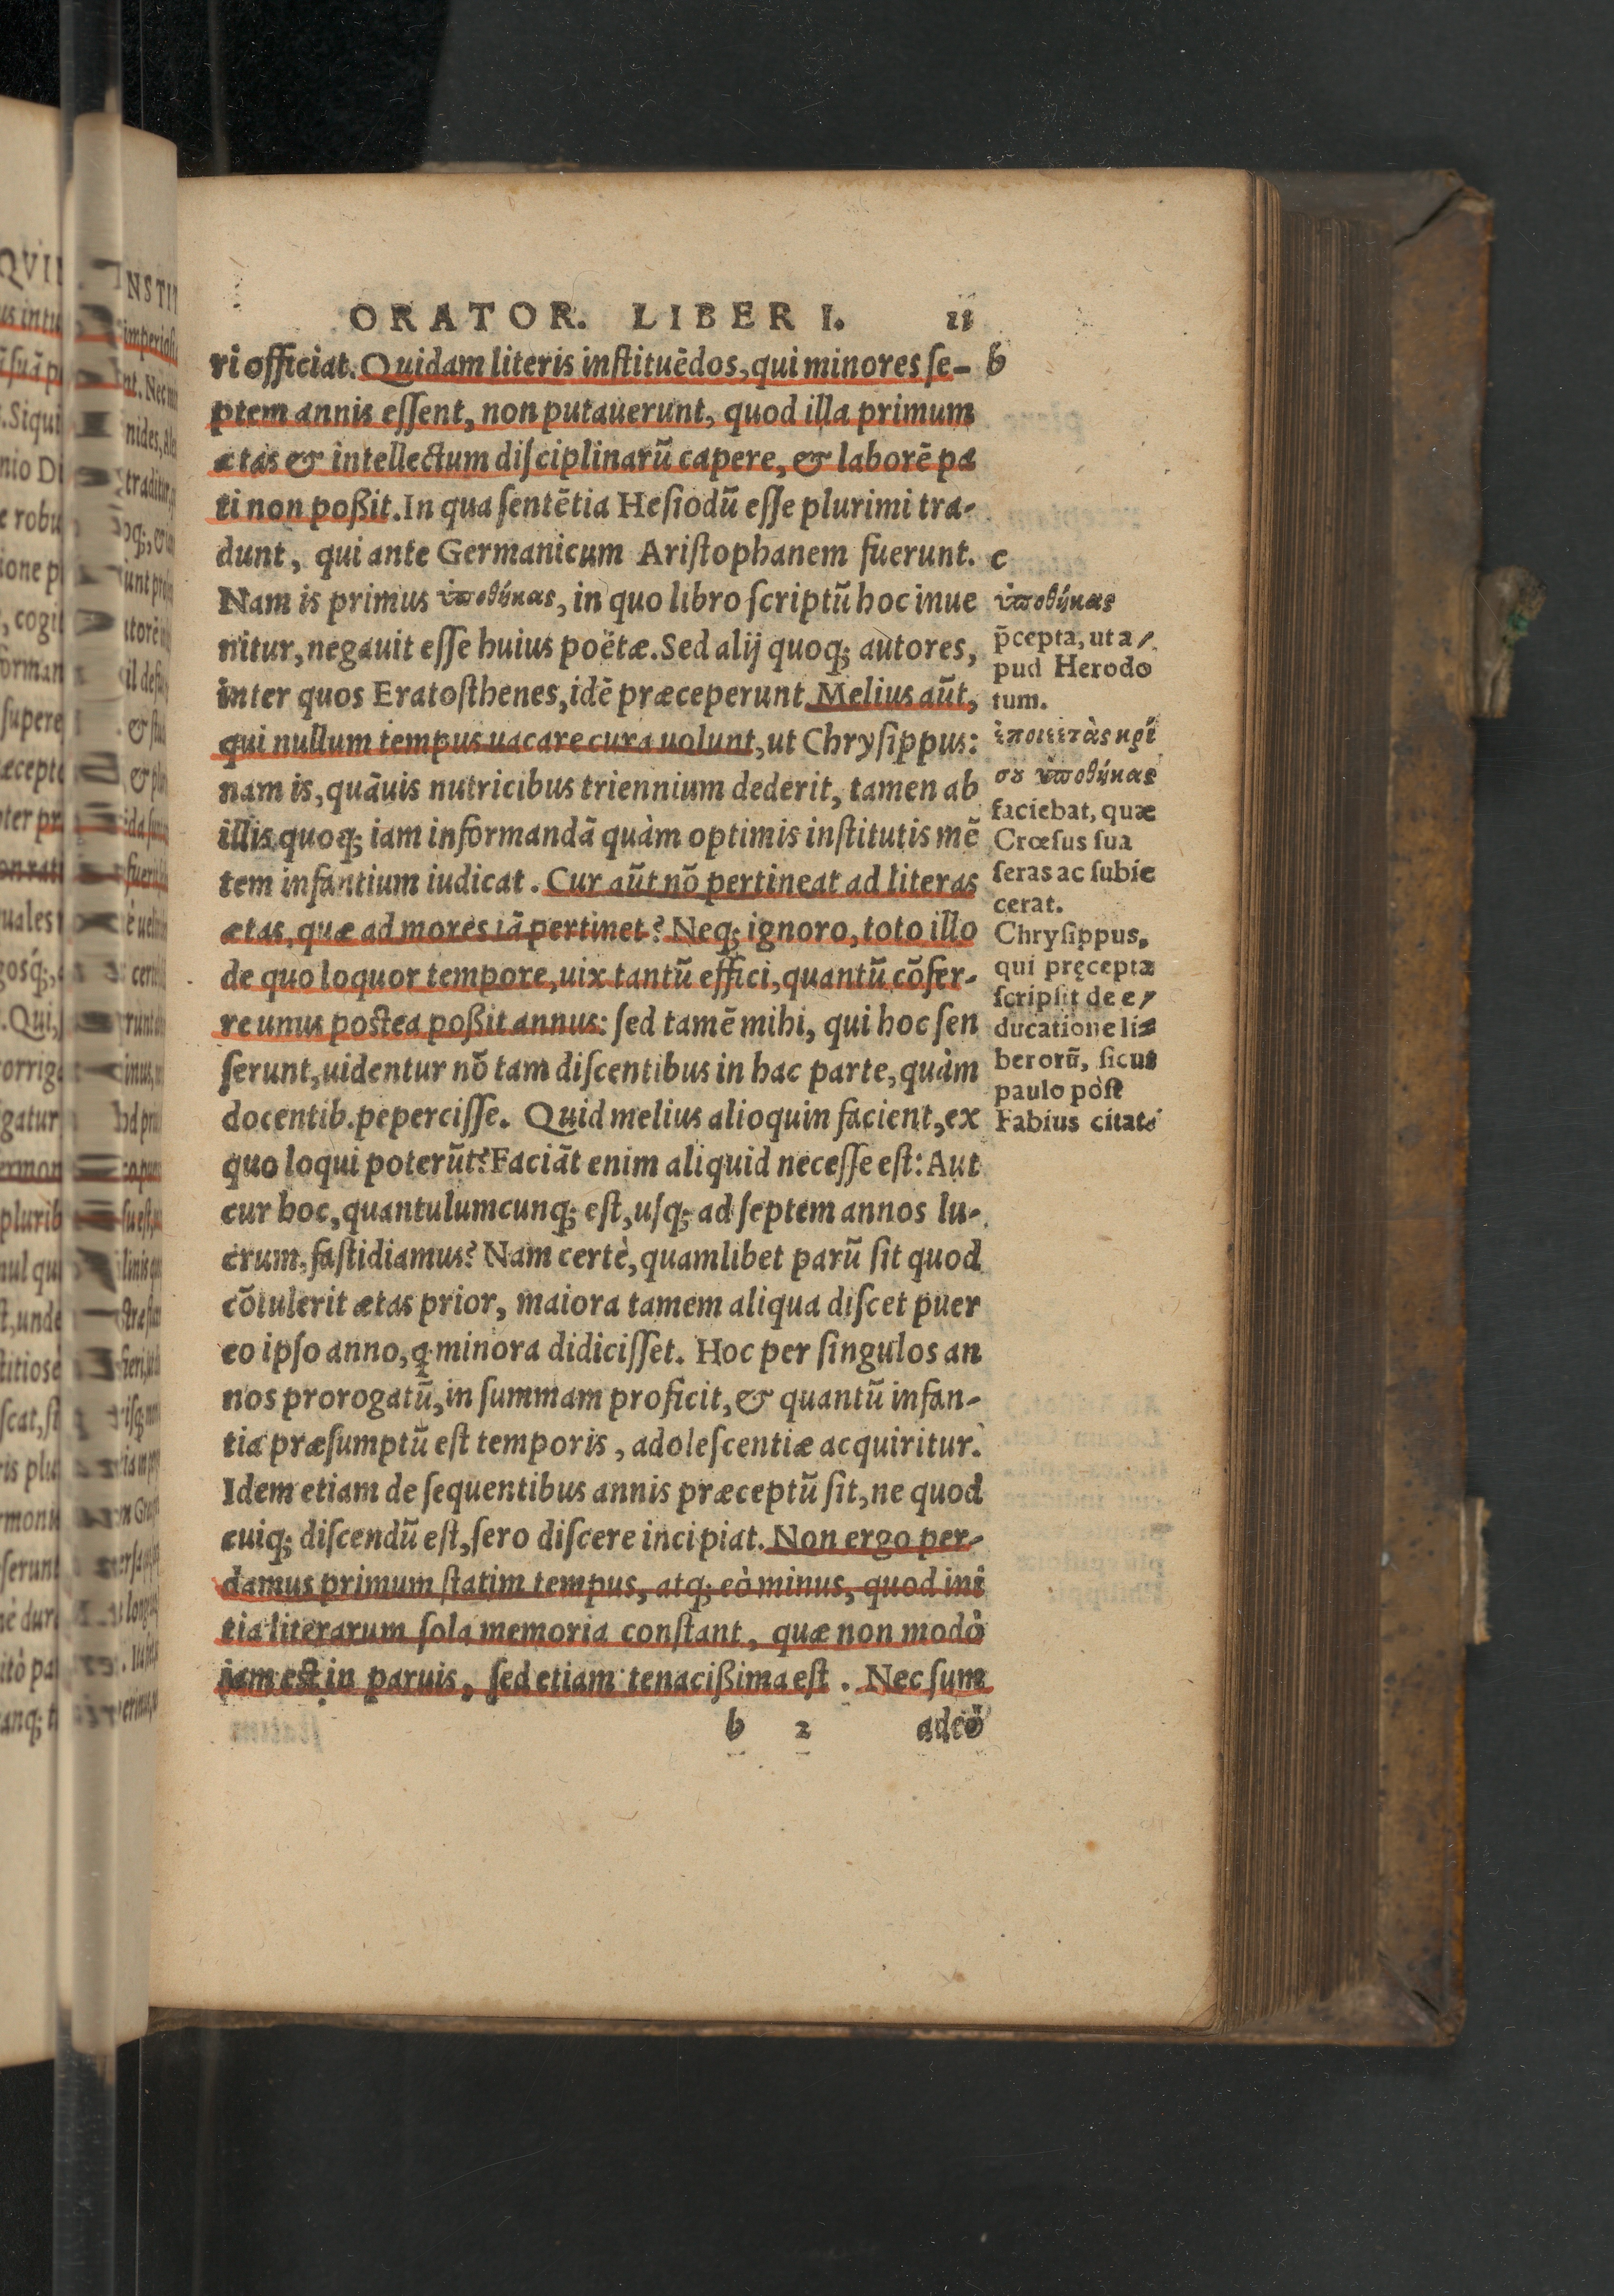 ORATOR. LIBER I. 11
ri officiat. Quidam literis instituēdos, qui minores se- b
ptem annis essent, non putauerunt, quod illa primum
ætas & intellectum disciplinarū capere, & laborē pa
ti non poßit. In qua sentētia Hesiodū esse plurimi tra-
dunt, qui ante Germanicum Aristophanem fuerunt. c
Nam is primus ὑποθήκας, in quo libro scriptū hoc inue
nitur, negauit esse huius poëtæ. Sed alij quoq; autores,
inter quos Eratosthenes, idē præceperunt. Melius aūt,
qui nullum tempus uacare cura uolunt, ut Chrysippus:
nam is, quāuis nutricibus triennium dederit, tamen ab
illis quoq; iam informandā quàm optimis institutis mē
tem infantium iudicat. Cur aūt nō pertineat ad literas
ætas, quæ ad mores iā pertinet? Neq; ignoro, toto illo
de quo loquor tempore, uix tantū effici, quantū cōfer-
re unus postea poßit annus: sed tamē mihi, qui hoc sen
serunt, uidentur nō tam discentibus in hac parte, quàm
docentib. pepercisse. Quid melius alioquin facient, ex
quo loqui poterūt? Faciāt enim aliquid necesse est: Aut
cur hoc, quantulumcunq; est, usq; ad septem annos lu-
crum, fastidiamus? Nam certè, quamlibet parū sit quod
cōtulerit ætas prior, maiora tamem aliqua discet puer
eo ipso anno, q minora didicisset. Hoc per singulos an
nos prorogatū, in summam proficit, & quantū infan-
tia præsumptū est temporis, adolescentiæ acquiritur.
Idem etiam de sequentibus annis præceptū sit, ne quod
cuiq; discendū est, sero discere incipiat. Non ergo per-
damus primum statim tempus, atq; eò minus, quod ini
tia literarum sola memoria constant, quæ non modò
iam est in paruis, sed etiam tenacißima est. Nec sum
b 2 adeò
ὑποθήκας
p̄cepta, ut a/
pud Herodo
tum.
ὑποθήκας
faciebat, quæ
Crœsus sua
seras ac subie
cerat.
Chrysippus,
qui pręcepta
scripsit de e/
ducatione li=
berorū, sicut
paulo pòst
Fabius citat.